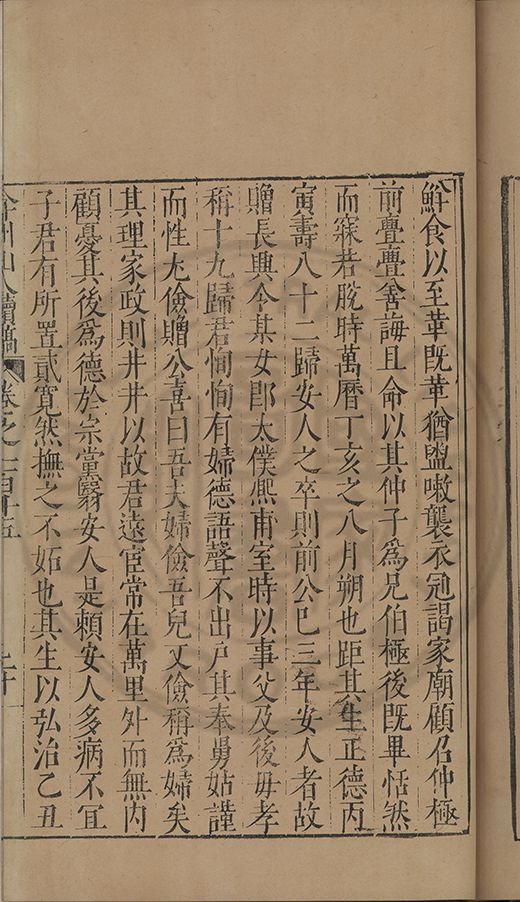 鮮食以至革既革猶盥嗽襲衣冠謁家廟顧召仲極
前亹亹善誨且命以其仲子爲兄伯極後既畢恬然
而寐若脫時萬曆丁亥之八月朔也距其生正德丙
寅壽八十二歸安人之卒則前公巳三年安人者故
贈長興令某女郎太僕熙甫室時以事父及後毋孝
稱十九歸君恂恂有婦德語聲不出戸其奉舅姑謹
而性尢儉贈公喜曰吾夫婦儉吾兒又儉稱爲婦矣
其理家政則井井以故君遠宦常在萬里外而無内
顧憂其後爲德於宗黨翳安人是賴安人多病不宜
子君有所置貳寬然撫之不妬也其生以弘治乙丑
弇州山人續稿 卷之一百